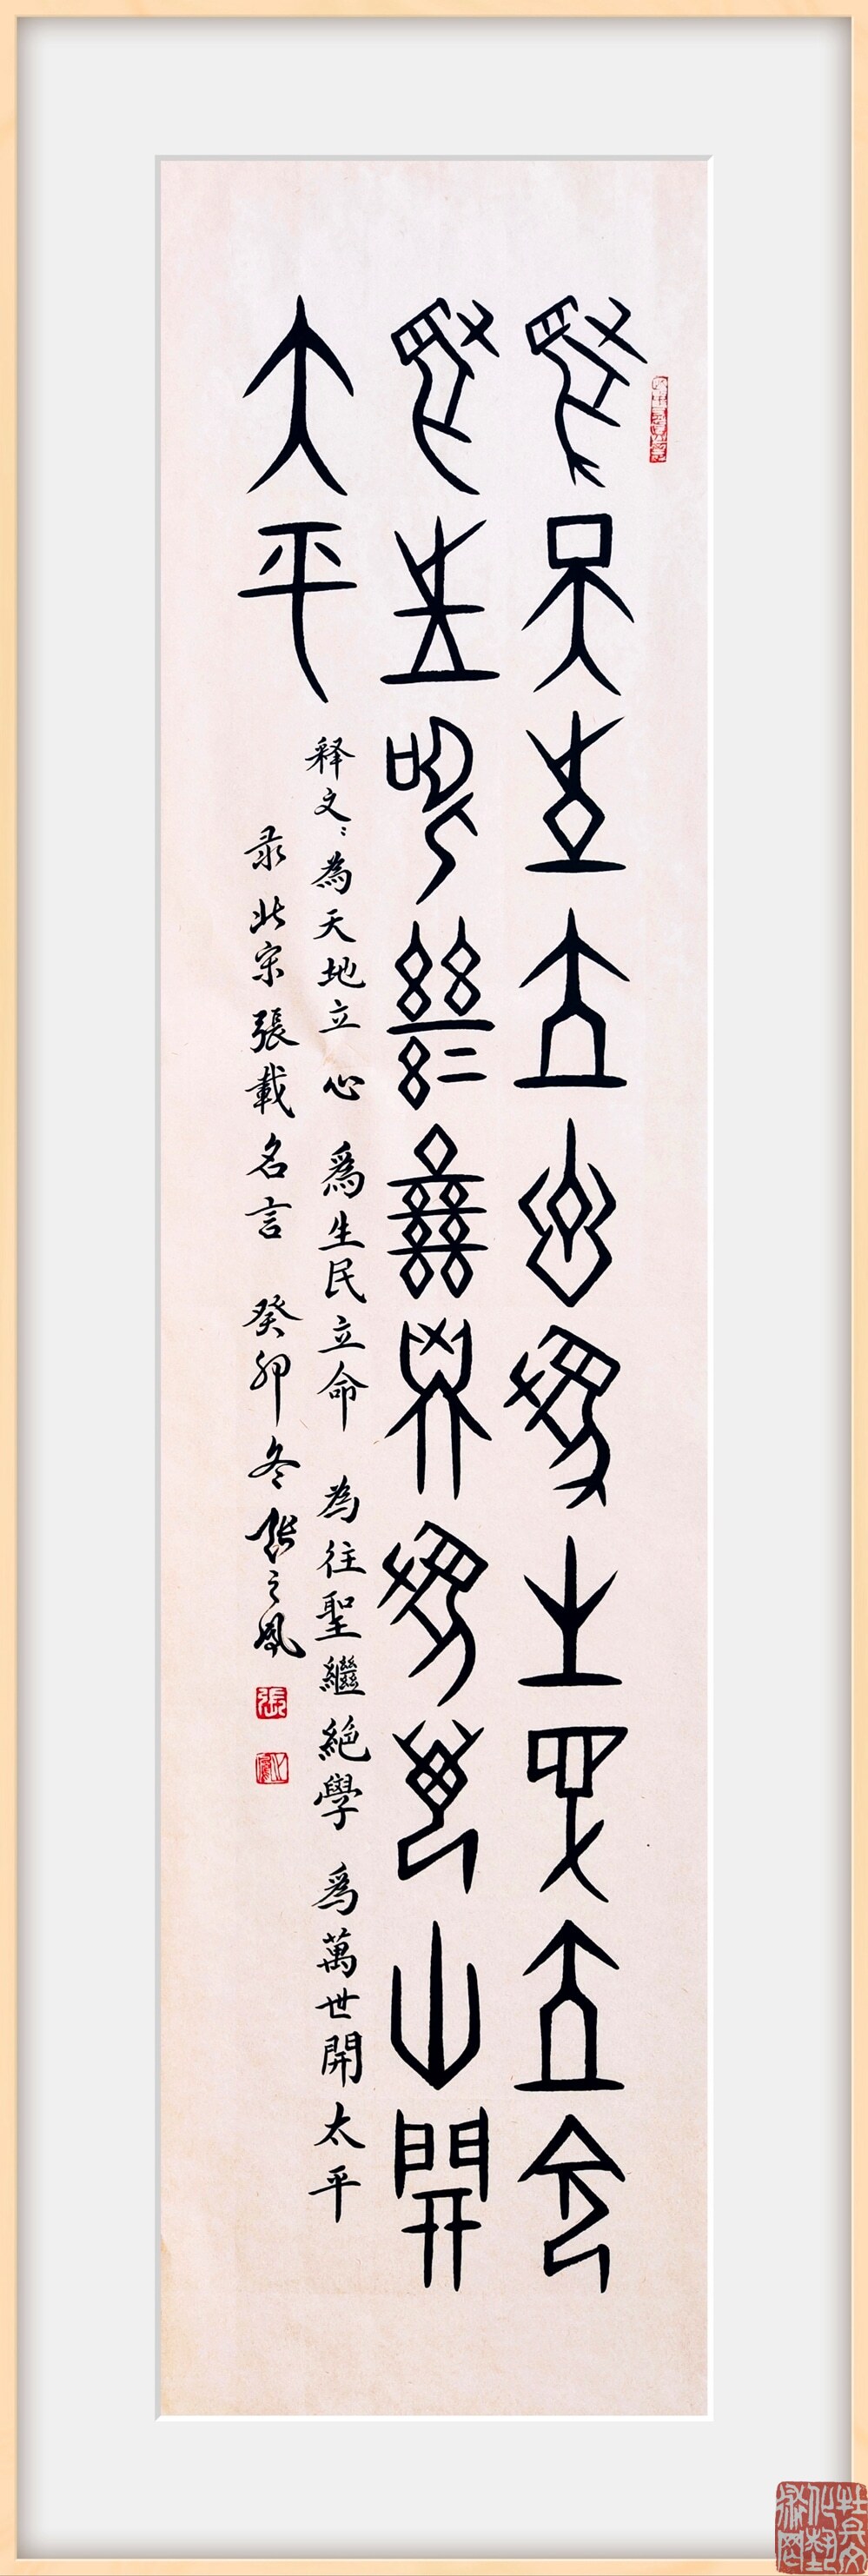 為天地立心為生民立命
為往聖繼絕學為萬世開
太平
释文：為天地立心 為生民立命 為往聖繼絕學 為萬世開太平
录北宋張載名言 癸卯冬張之鳳
張
之鳳
牡丹文化藝術網